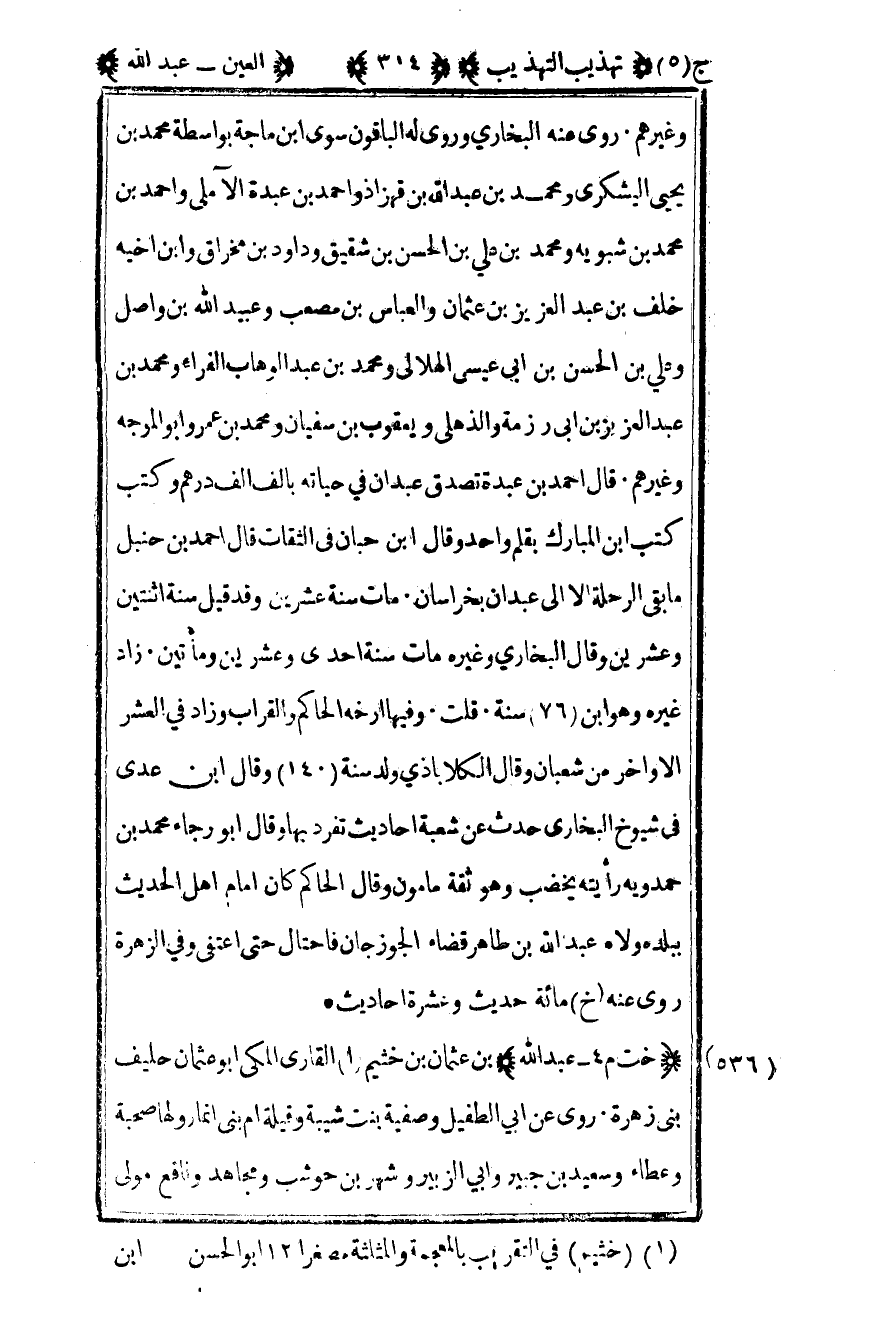 ج(٥) ﴿ تهذيب التهذيب ﴾ ﴿ ٣١٤ ﴾ ﴿ العين ـ عبد الله ﴾
وغيرهم٠ روى عنه البخاري وروى له الباقون سوى ابن ماجة بواسطة محمد بن
يحيى اليشكرى ومحمد بن عبد الله بن قهزاذ واحمد بن عبدة الآملى واحمد بن
محمد بن شبويه ومحمد بن علي بن الحسن بن شقيق وداود بن مخراق وابن اخيه
خلف بن عبد العزيز بن عثمان والعباس بن مصعب وعبيد الله بن واصل
وعلي بن الحسن بن ابى عيسى الهلالى ومحمد بن عبد الوهاب الفراء ومحمد بن
عبد العزيز بن ابى رزمة والذهلى ويعقوب بن سفيان ومحمد بن عمرو ابو الموجه
وغيرهم٠ قال احمد بن عبدة تصدق عبدان في حياته بالف الف درهم وكتب
كتب ابن المبارك بقلم واحد وقال ابن حبان فى الثقات قال احمد بن حنبل
ما بقى الرحلة الا الى عبدان بخراسان٠ مات سنة عشرين وقد قيل سنة اثنتين
وعشرين وقال البخاري وغيره مات سنة احدى وعشرين ومأتين٠ زاد
غيره وهو ابن (٧٦) سنة٠ قلت٠ وفيها ارخه الحاكم والقراب وزاد في العشر
الاواخر من شعبان وقال الكلاباذي ولد سنة (١٤٠) وقال ابن عدى
فى شيوخ البخارى حدث عن شعبة احاديث تفرد بها وقال ابو رجاء محمد بن
حمدويه رأيته يخضب وهو ثقة مامون وقال الحاكم كان امام اهل الحديث
ببلده ولاه عبد الله بن طاهر قضاء الجوزجان فاحتال حتى اعتفى وفي الزهرة
روى عنه (خ) مائة حديث وعشرة احاديث•
(٥٣٦) ﴿ خت م ٤ ـ عبد الله ﴾ بن عثمان بن خثيم (١) القارى المكى ابو عثمان حليف
بنى زهرة٠ روى عن ابي الطفيل وصفية بنت شيبة وقيلة ام بنى انمار ولها صحبة
وعطاء وسعيد بن جبير وابي الزبير وشهر بن حوشب ومجاهد ونافع مولى
(١) (خثيم) في التقريب بالمعجمة والمثلثة مصغرا ١٢ ابو الحسن ابن